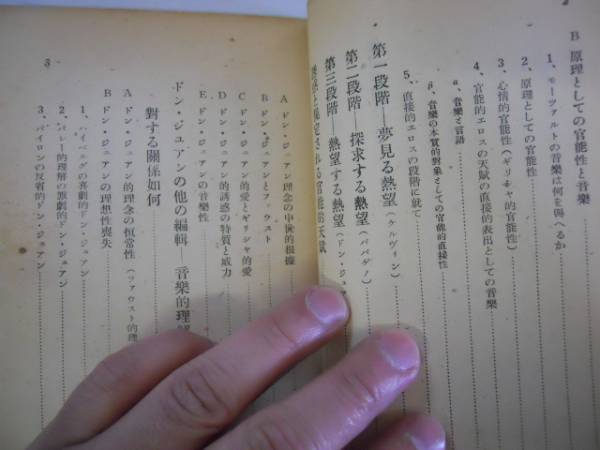 B 原理としての官能性と音樂
1、モーツァルトの音樂は何を與へるか
2、原理としての官能性
3、心情的官能性(ギリチャ的官能性)
4、官能的エロスの天賦の直接的表出としての音樂
α、音樂と言語
β、音樂の本質的對象としての官能的直接性
5、直接的エロスの段階に就て
第一段階——夢見る熱望(ケルヴィン)
第二段階——探求する熱望(パパゲノ)
第三段階——熱望する熱望(ドン・ジュア
される官能的天賦
A ドン・ジュアン理念の中世的根據
B ドン・ジュアンとファウスト
C ドン・ジュアン的愛とギリシャ的愛
D ドン・ジュアン的誘惑の特質と威力
E ドン・ジュアンの音樂性
ドン・ジュアンの他の編輯——音樂的理解
對する關係如何
A ドン・ジュアン的理念の恒常性(ファウスト的理
B ドン・ジュアンの理想性喪失
1、ハイベェグの喜劇的ドン・ジュアン
2、的理解の歌劇的ドン・ジュアン
3、バイロンの反省的ドン・ジュアン
3